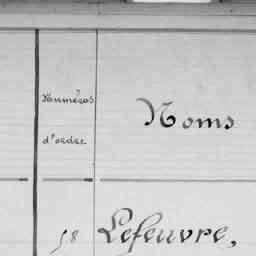 Numéros
d'ordre
Noms
58 Lefeuvre,